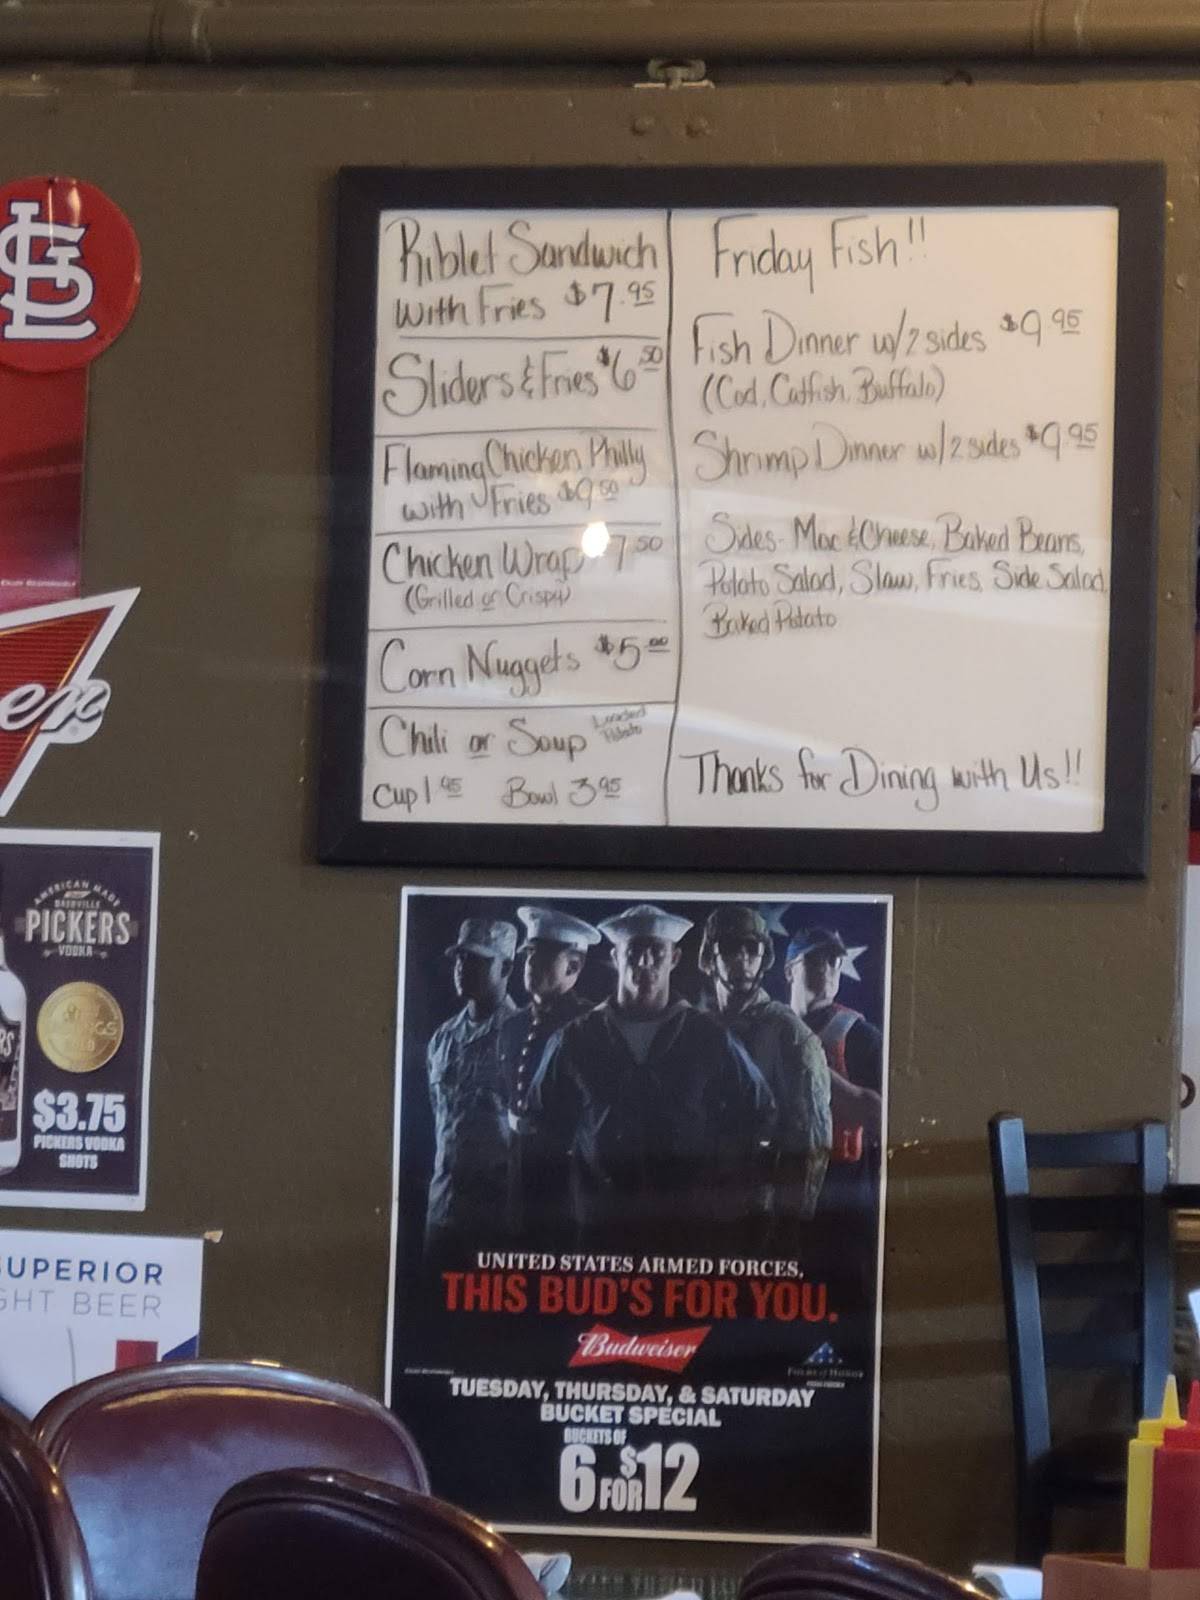 Riblet Sandwich
with Fries $7.95
Sliders & Fries $6.50
Flaming Chicken Philly
with Fries $9.50
Chicken Wrap 7.50
(Grilled or Crispy)
Corn Nuggets $5.00
Chili or Soup Loaded
Potato
Cup 1.95 Bowl 3.95
Friday Fish!!
Fish Dinner w/2 sides $9.95
(Cod, Catfish, Buffalo)
Shrimp Dinner w/2 sides $9.95
Sides- Mac & Cheese, Baked Beans,
Potato Salad, Slaw, Fries, Side Salad,
Baked Potato
Thanks for Dining with Us!!
STL
er
AMERICAN MADE
NASHVILLE
PICKERS
VODKA
$3.75
PICKERS VODKA
SHOTS
SUPERIOR
GHT BEER
UNITED STATES ARMED FORCES,
THIS BUD'S FOR YOU.
Budweiser
Folds of Honor
TUESDAY, THURSDAY, & SATURDAY
BUCKET SPECIAL
BUCKETS OF
6 FOR $12